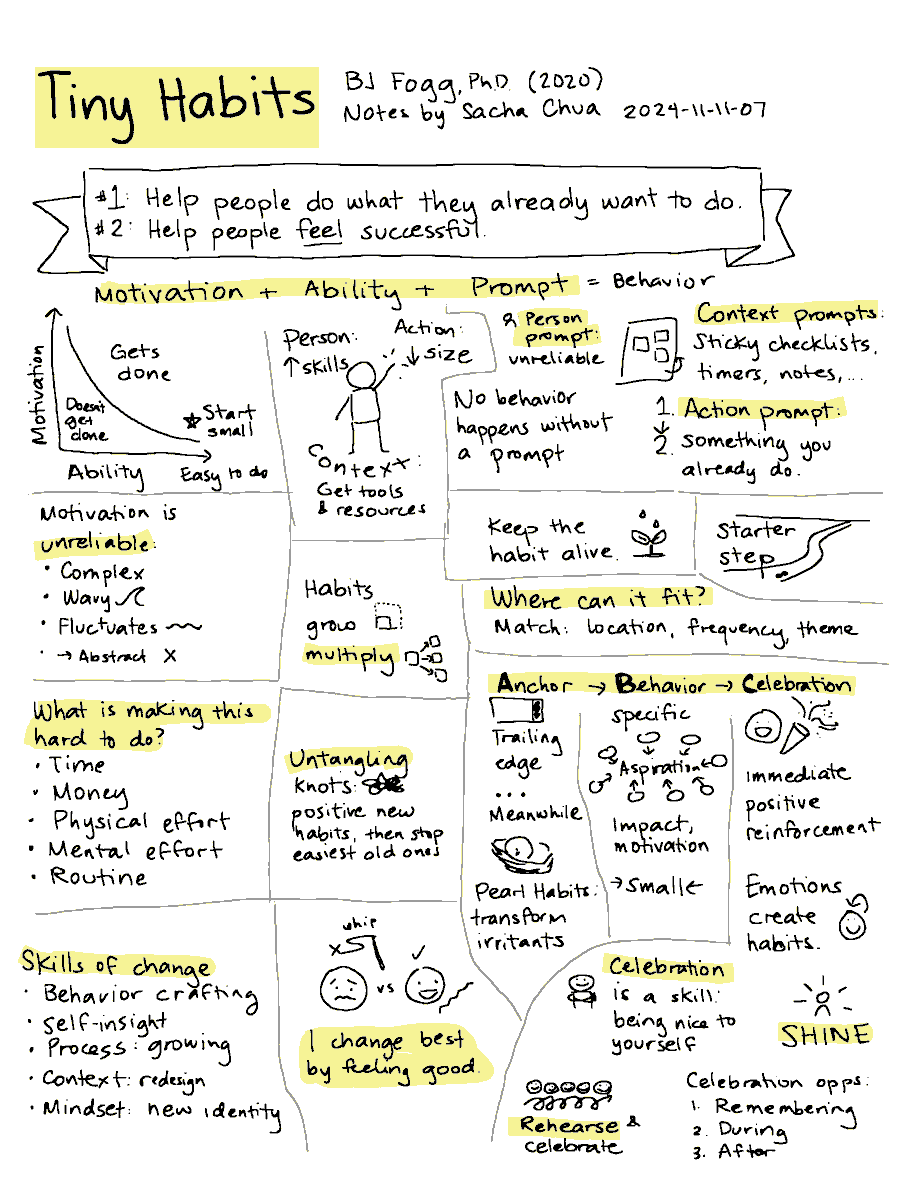 Tiny Habits
BJ Fogg, Ph.D. (2020)
Notes by Sacha Chua 2024-11-11-07
#1: Help people do what they already want to do.
#2: Help people feel successful.
Motivation + Ability + Prompt = Behavior
Motivation
Gets
done
Doesn't
get
done
★ Start
small
Ability
Easy to do
Person:
↑ skills
Action:
↓ size
Context:
Get tools
& resources
& Person
prompt:
unreliable
No behavior
happens without
a prompt
Context prompts:
Sticky checklists,
timers, notes,...
1. Action prompt:
↓
2. something you
already do.
Motivation is
unreliable:
• Complex
• Wavy
• Fluctuates
• → Abstract X
Habits
grow
multiply
Keep the
habit alive.
Starter
step
Where can it fit?
Match: location, frequency, theme
What is making this
hard to do?
• Time
• Money
• Physical effort
• Mental effort
• Routine
Untangling
knots:
positive new
habits, then stop
easiest old ones
Anchor → Behavior → Celebration
Trailing
edge
...
Meanwhile
Pearl Habits:
transform
irritants
specific
Aspiration
Impact,
motivation
→ small ←
immediate
positive
reinforcement
Emotions
create
habits.
Skills of change
• Behavior crafting
• self-insight
• Process: growing
• Context: redesign
• Mindset: new identity
whip
X
✓
vs
I change best
by feeling good.
Celebration
is a skill:
being nice to
yourself
SHINE
Rehearse &
celebrate
Celebration opps:
1. Remembering
2. During
3. After